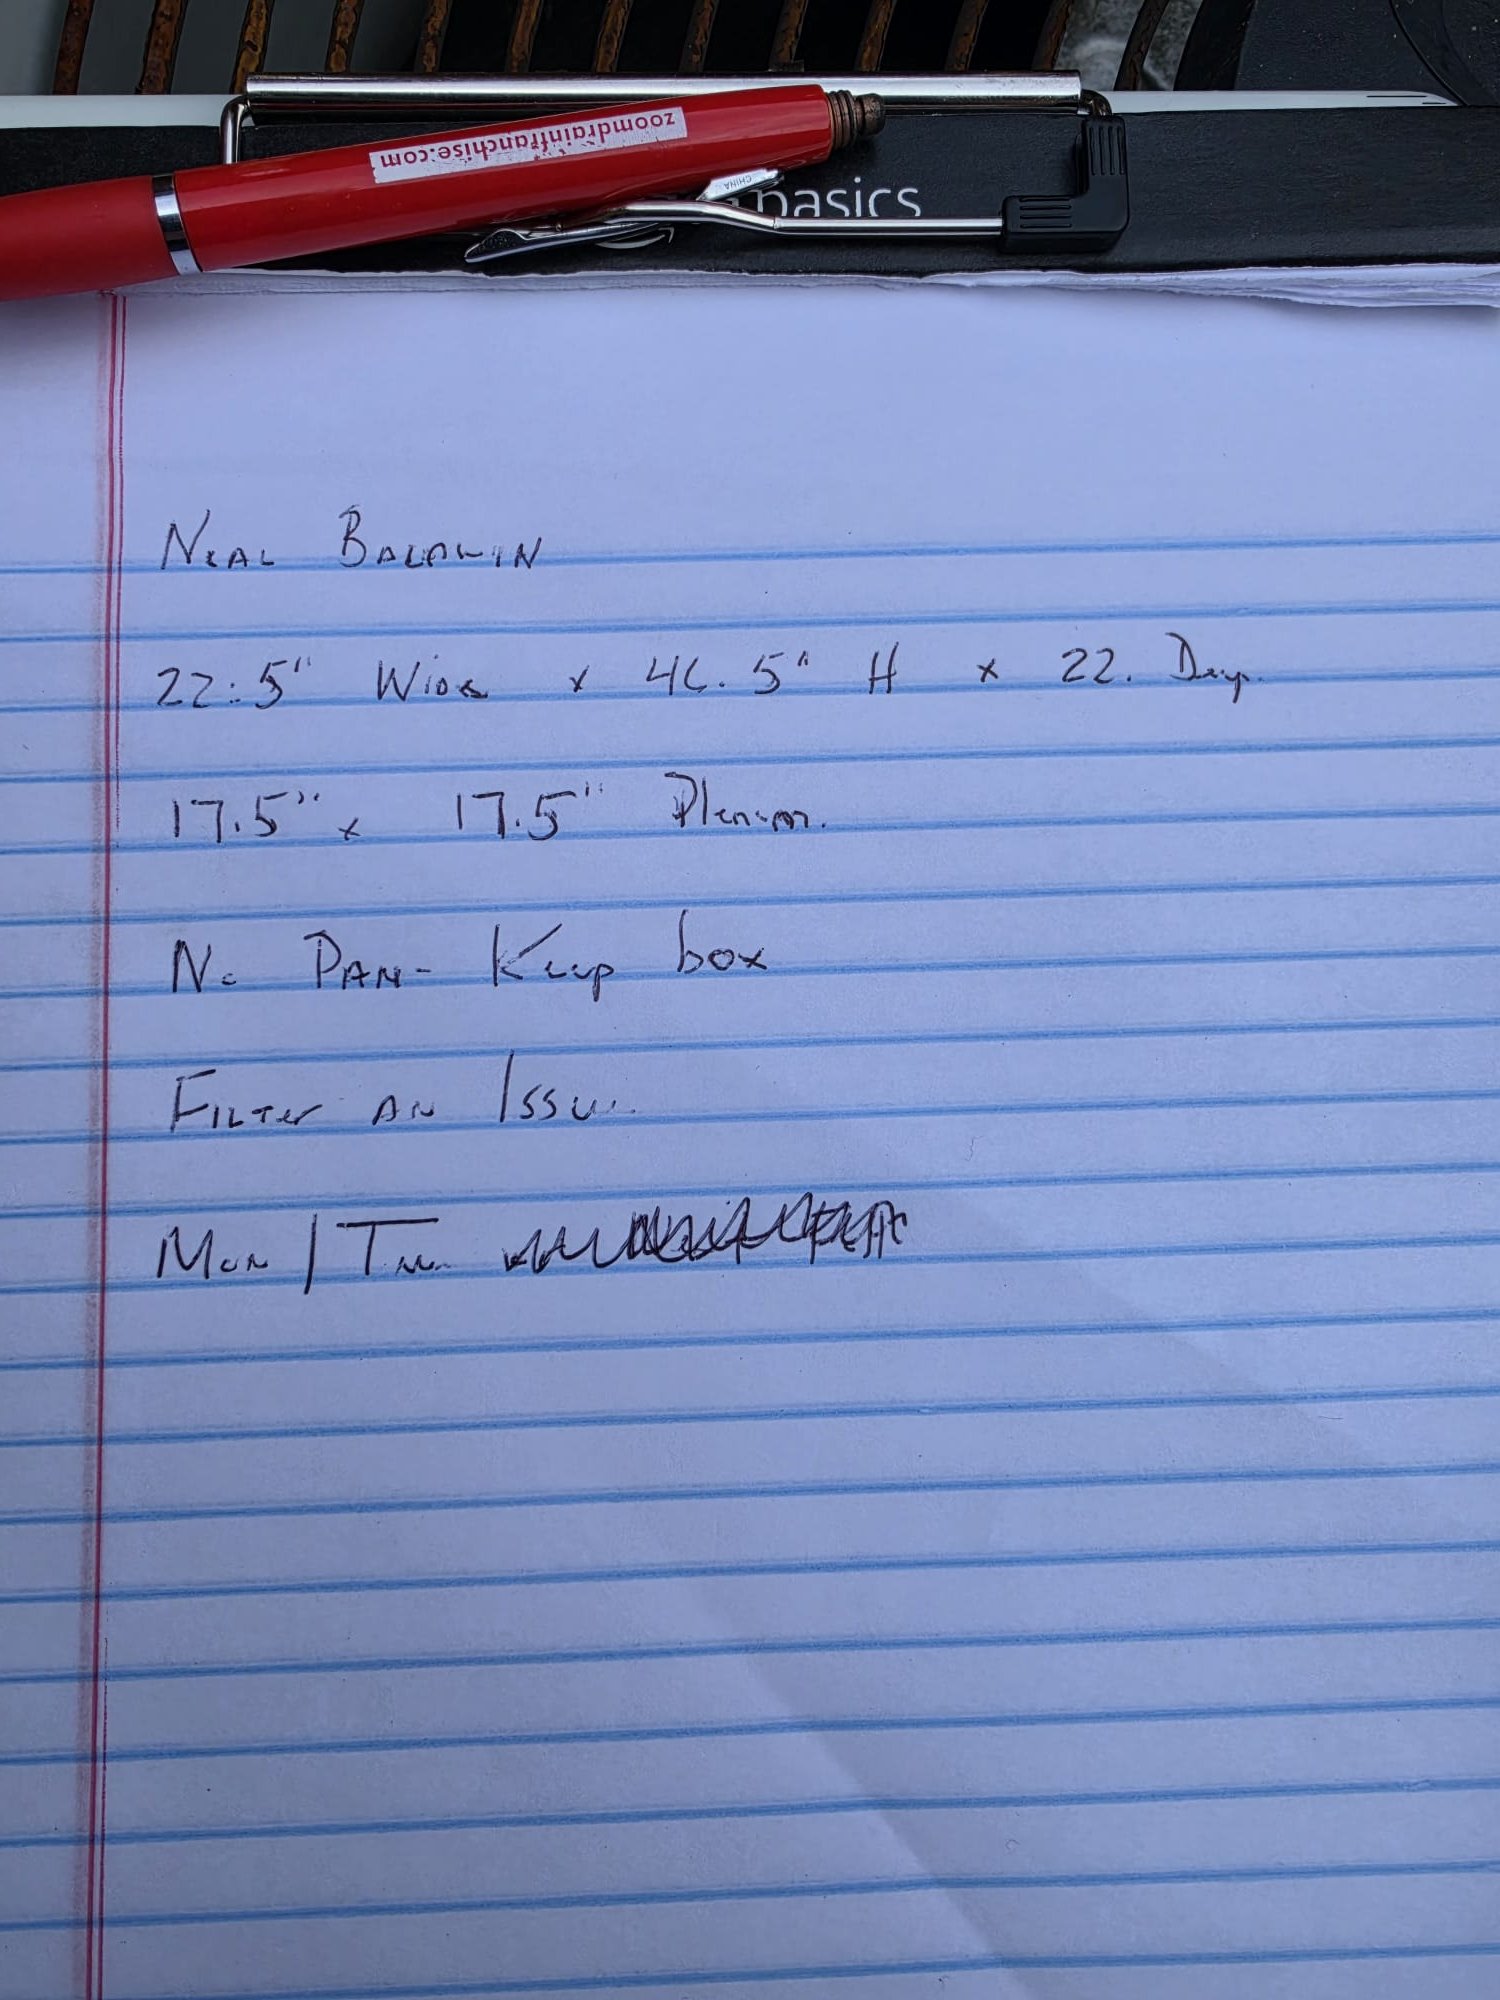 zoomdrainfranchise.com
CHINA
basics
Neal Baldwin
22.5" Wide x 46.5" H x 22. Deep.
17.5" x 17.5" Plenum.
No Pan - Keep box
Filter an Issue
Mon / Tue